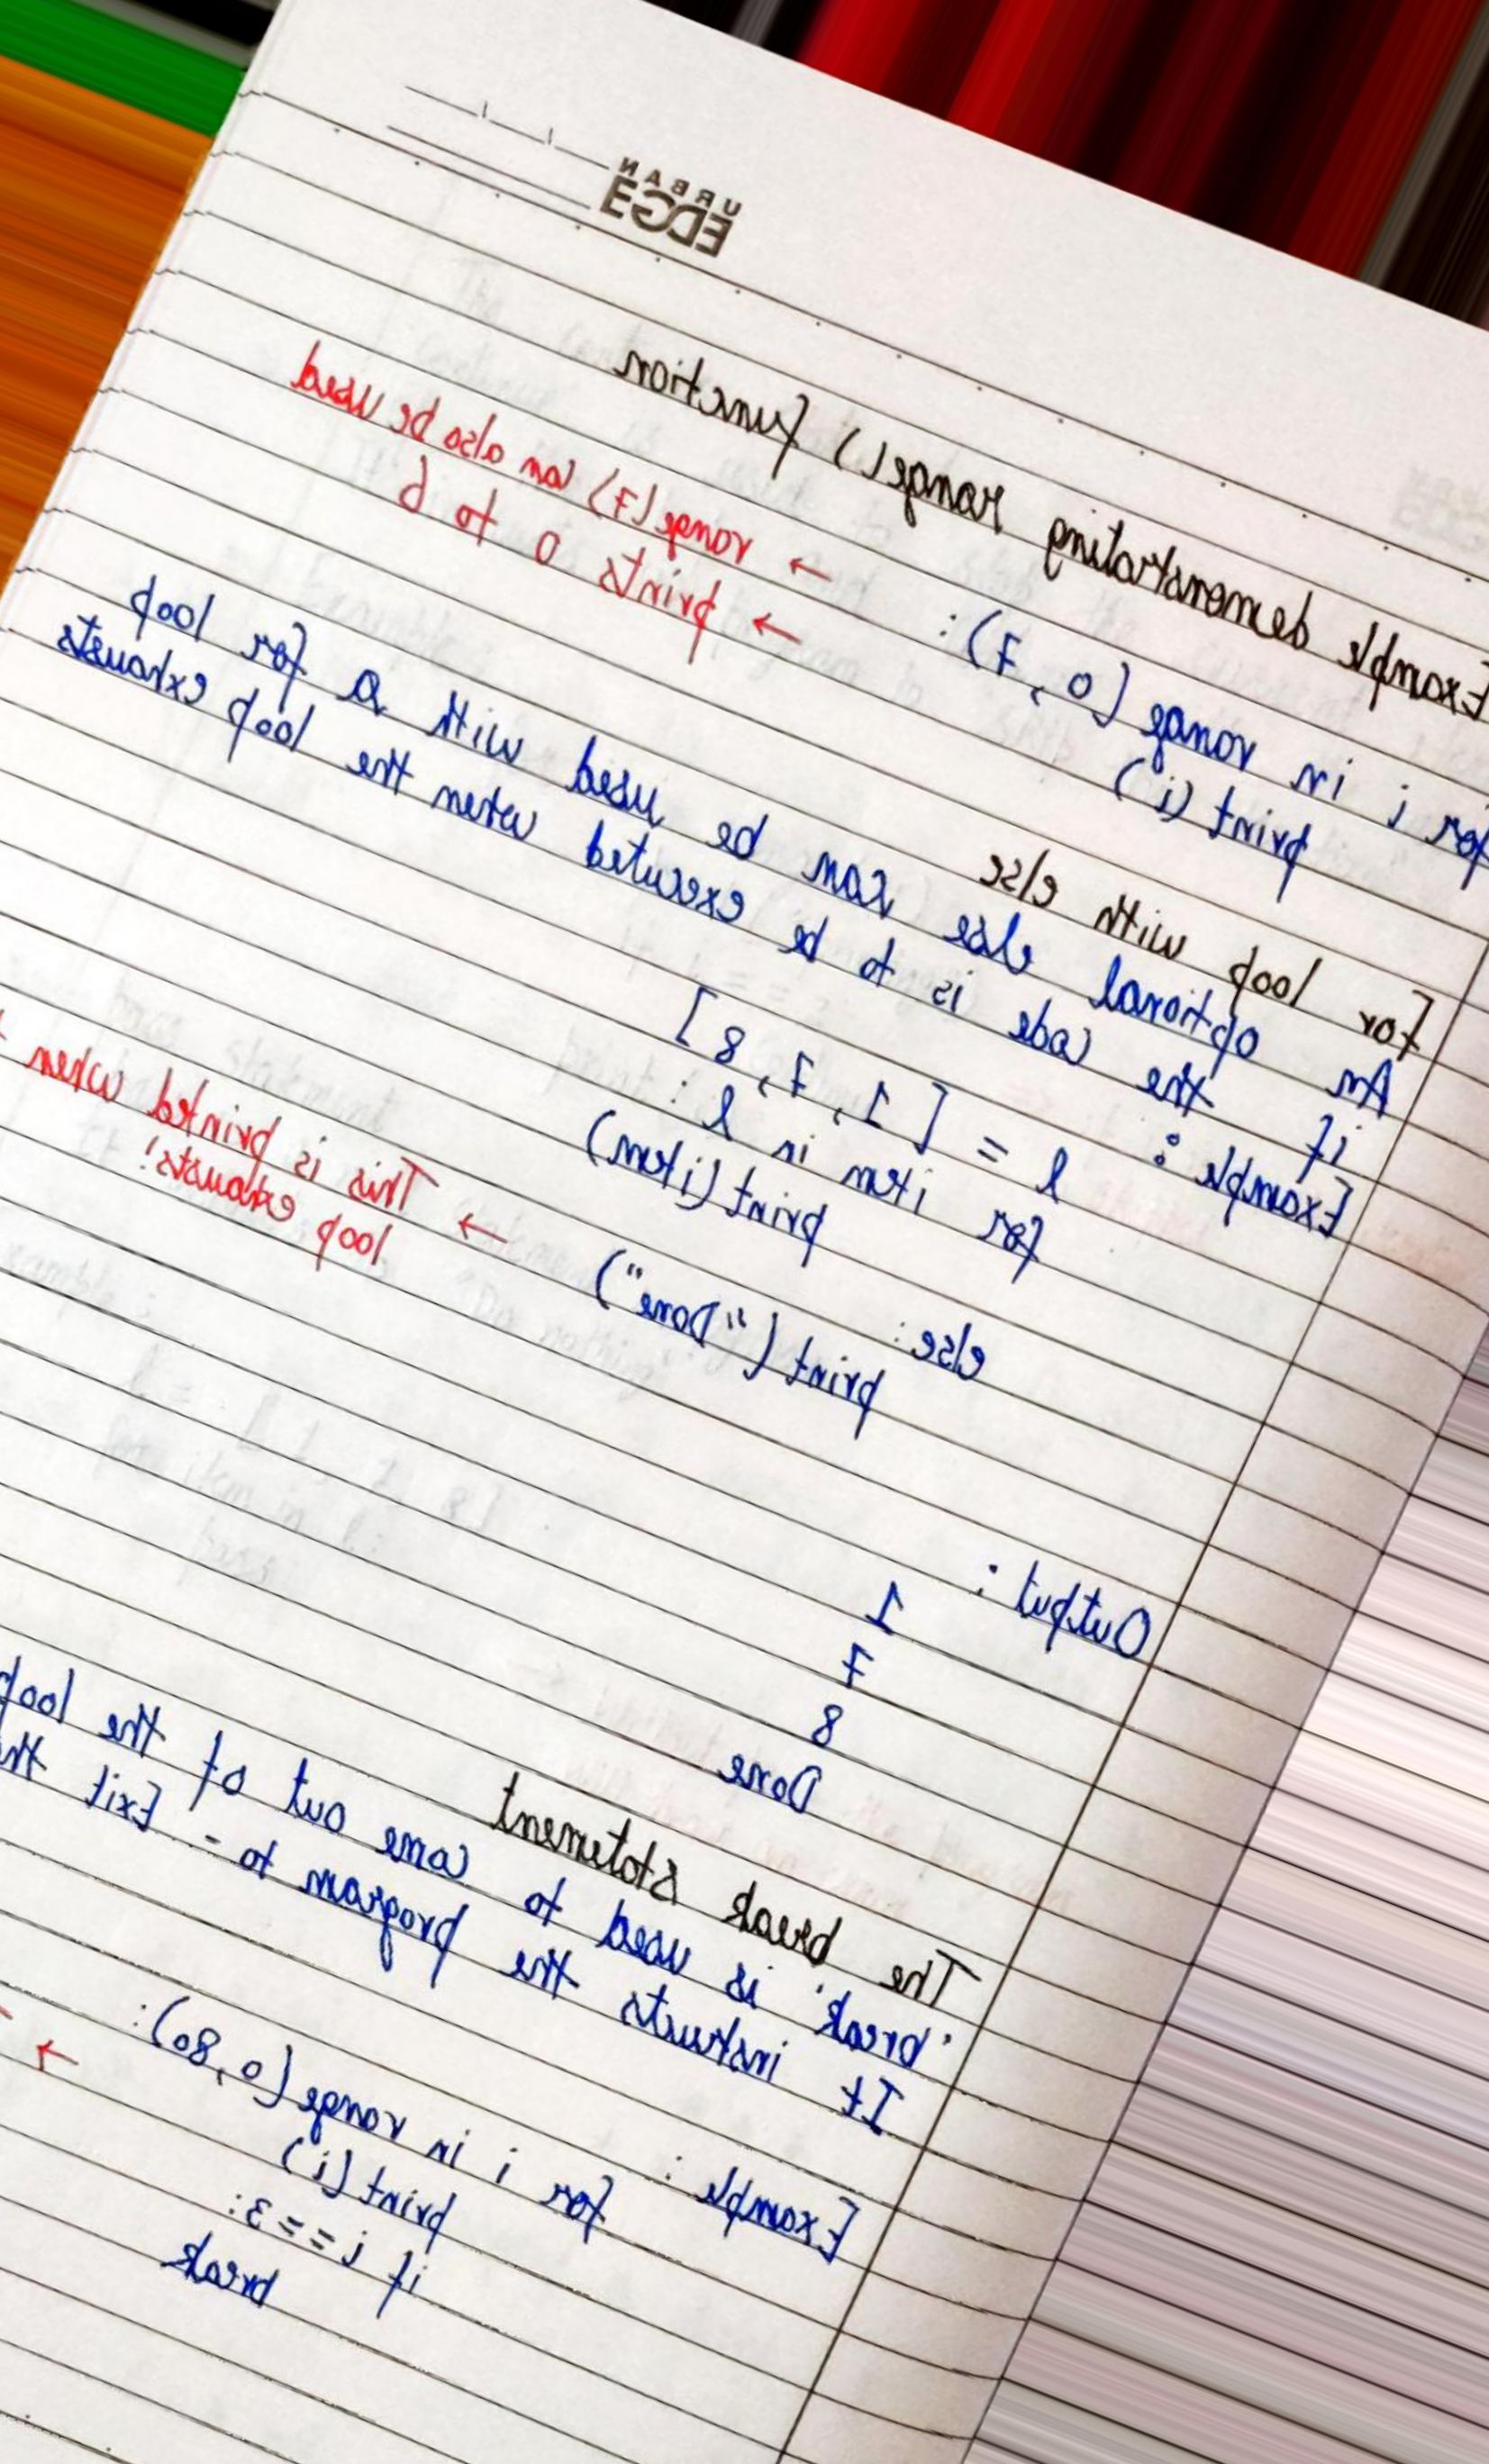 URBAN
EDGE
Example demonstrating range() function
for i in range (0, 7): → range (7) can also be used
print (i) → prints 0 to 6
For loop with else
An optional else can be used with a for loop
if the code is to be executed when the loop exhausts
Example : l = [1, 7, 8]
for item in l :
print (item)
else :
print ("Done") → This is printed when
loop exhausts!
Output :
1
7
8
Done
The break statement
'break' is used to come out of the loop
It instructs the program to - Exit the
Example : for i in range (0, 80): →
print (i)
if i == 3:
break